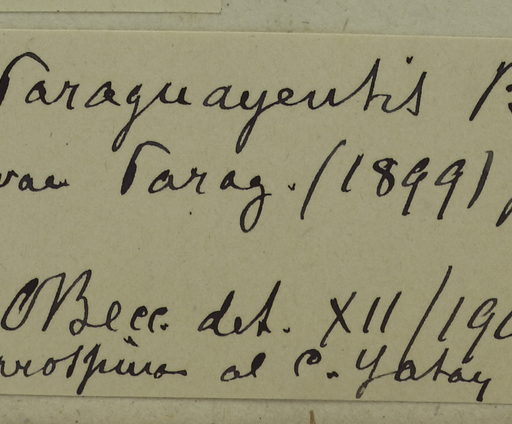 Paraguayensis B
Parag. (1899)
OBecc. det. XII/190
al C. Yatay